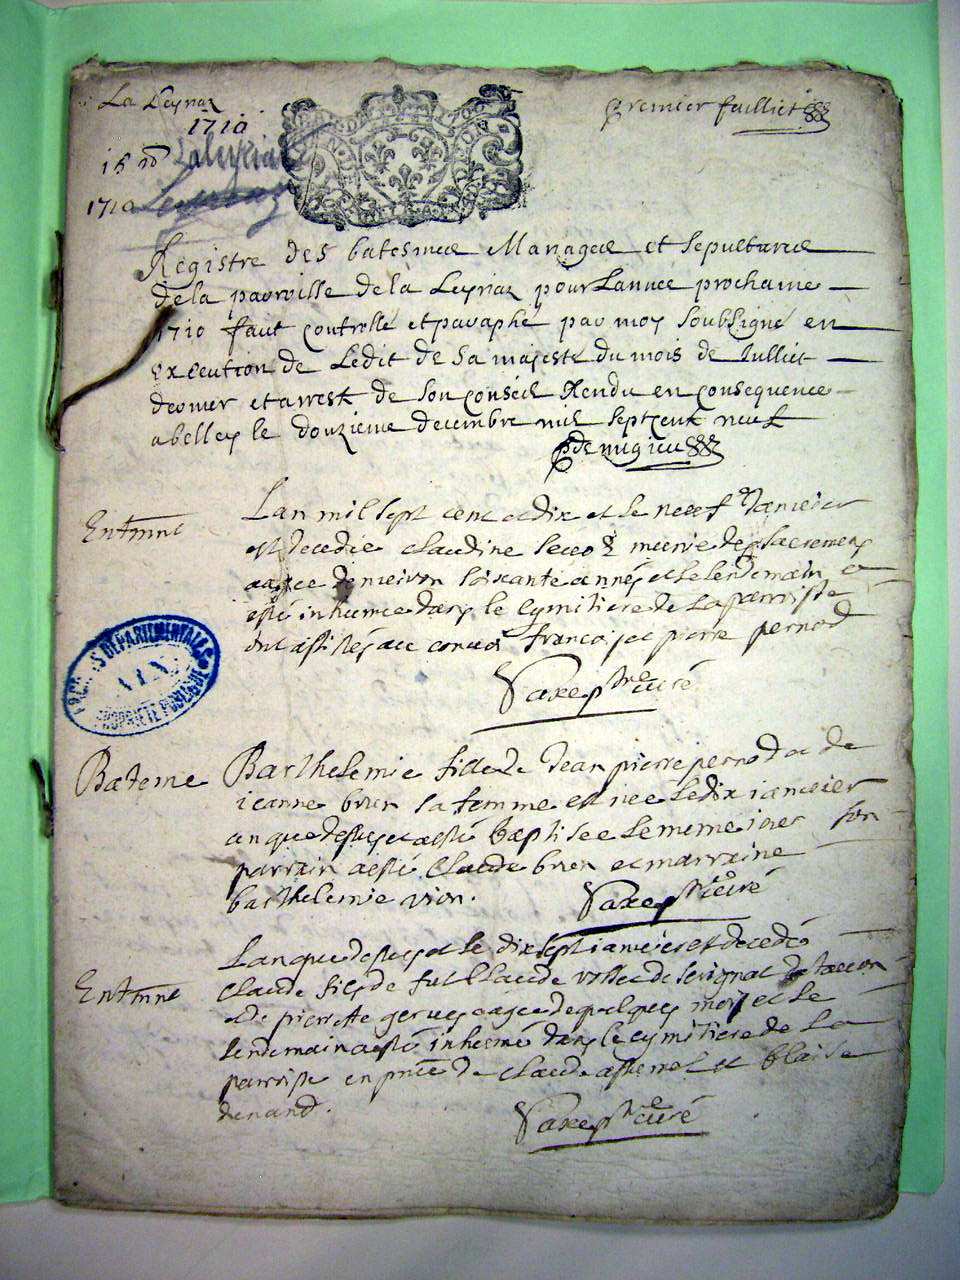 La Leyriaz
1710
premier feuilliet
1710
Registre des batesmee Mariagee et sepulturee
de la parroisse de la Leyriaz pour Lannee prochaine
1710 faut controllé et paraphé par moy soubsigné en
execution de Ledit de sa majesté du mois de Julliet
dernier et arrest de son conseil Rendu en consequence
a belley le douzieme decembre mil sept cent neuf
Enterremt
Lan mil sept cent et dix et le neuf Janvier
est decedée claudine munie des sacremens
aagee denviron soixante années et le lendemain a
esté inhumée dans le cymitiere de La parroisse
ont assistés au convoi francois et pierre pernod
Saxe ptre curé
ARCHIVES DEPARTEMENTALES DE
L'AIN
PROPRIETE PUBLIQUE
Bateme
Barthelemie fille de Jean pierre pernod et de
ieanne brun sa femme est née le dix ianvier
an que dessus et a esté baptisée le meme iour son
parrain a esté Claude brun et marraine
barthelemie vion.
Saxe ptre curé
Enterremt
Lan que dessus et le dix sept ianvier est decedé
Claude fils de fut Claude de
et de pierrette aagé de quelques mois et le
lendemain a esté inhumé dans le cymitiere de La
parroisse en pnce de Claude et blaise
denand.
Saxe ptre curé